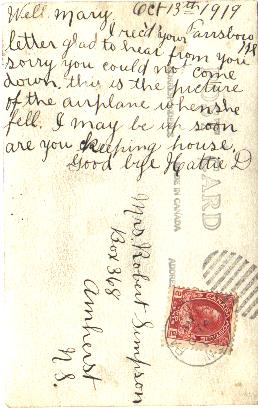 Well Mary Oct 13th 1919
I rec'd your Parrsboro
letter glad to hear from you NS
sorry you could no come
down. this is the picture
of the airplane when she
fell. I may be up soon
are you keeping house,
Good bye Hattie D
Mrs. Robert Simpson
Box 368
Amherst
N.S.
CARD
MADE IN CANADA
ADDRESS
CANADA POSTAGE